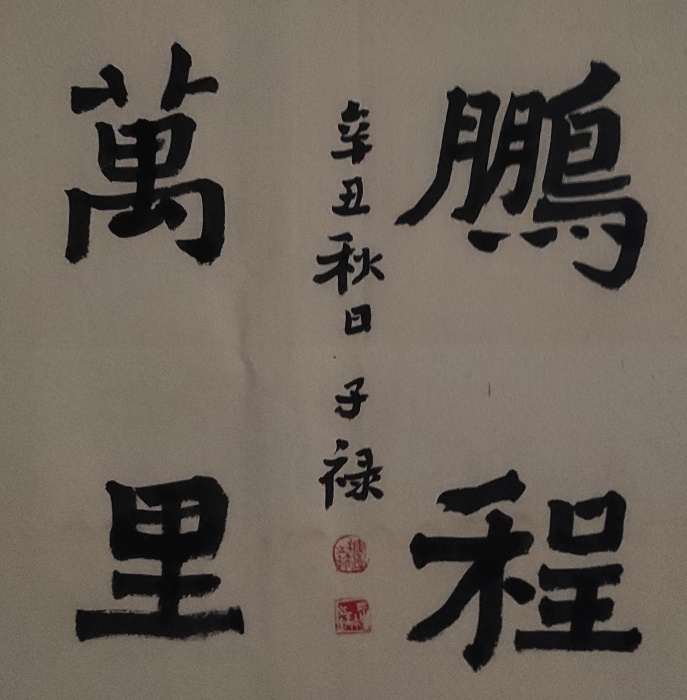 鵬程
萬里
辛丑秋日 子禄